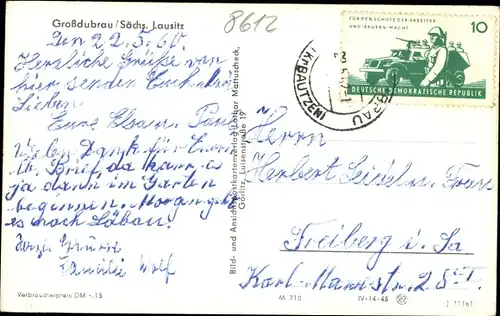 Großdubrau / Sächs. Lausitz
8612
Den 22.5.60.
Herzliche Grüße von
hier senden Euch
Lieben
Eure Elsa u. Paul
Vielen Dank für Euren
lb. Brief, da kann es
ja dann im Garten
beginnen. Morgen geht
es nach Löbau.
Herzl. Grüsse
Familie Wolf
Verbraucherpreis DM -.15
Bild- und Ansichtspostkartenverlag Lothar Mattuscheck,
Görlitz, Luisenstraße 19
FÜR DEN SCHUTZ DER ARBEITER-
UND-BAUERN-MACHT
10
DEUTSCHE DEMOKRATISCHE REPUBLIK
(KR BAUTZEN)
Herrn
Herbert
Freiberg i. Sa
Karl-Marxstr. 25
M 210
IV-14-45
J 11/61